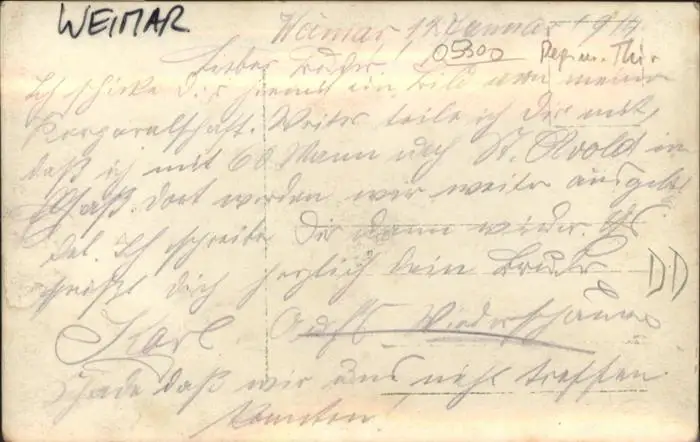 WEIMAR
Weimar 12. Januar 1917
05300
Lieber Bruder!
Ich schicke Dir hiermit ein Bild von meiner
Korporalschaft. Weiter teile ich Dir mit,
daß ich mit 60 Mann nach St. Avold in
Elsaß. Dort werden wir weiter ausgebil
det. Ich schreibe Dir dann wieder. Es
grüßt Dich herzlich dein Bruder
DD
Karl Aufs Wiederschauen
Schade daß wir uns nicht treffen
konnten.